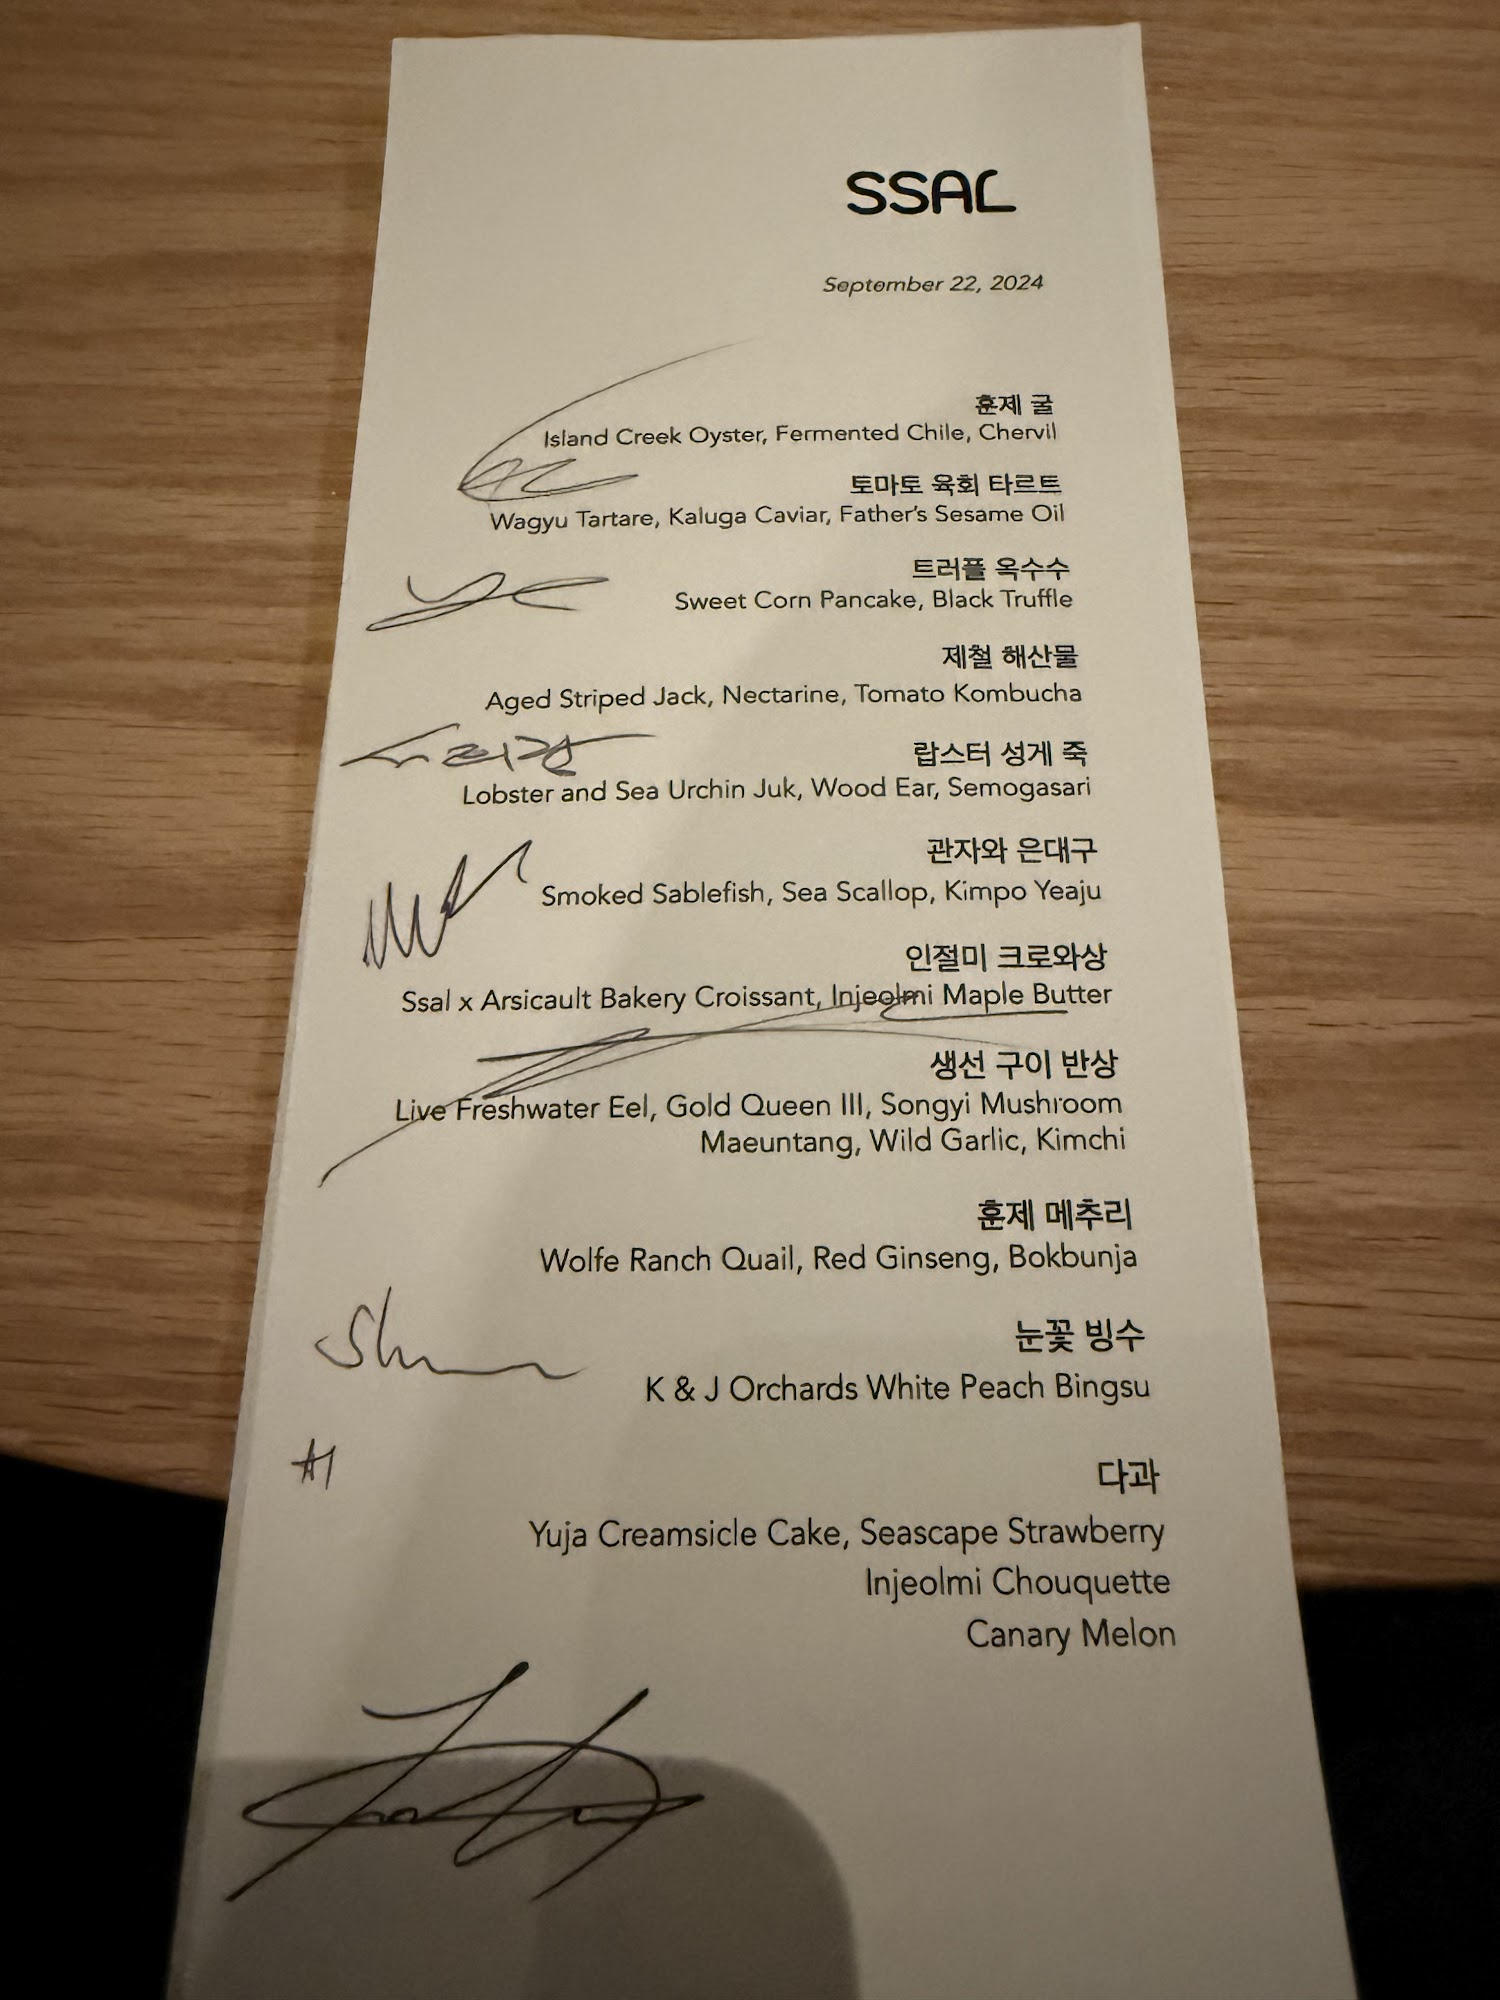 SSAL
September 22, 2024
훈제 굴
Island Creek Oyster, Fermented Chile, Chervil
토마토 육회 타르트
Wagyu Tartare, Kaluga Caviar, Father's Sesame Oil
트러플 옥수수
Sweet Corn Pancake, Black Truffle
제철 해산물
Aged Striped Jack, Nectarine, Tomato Kombucha
랍스터 성게 죽
Lobster and Sea Urchin Juk, Wood Ear, Semogasari
관자와 은대구
Smoked Sablefish, Sea Scallop, Kimpo Yeaju
인절미 크로와상
Ssal x Arsicault Bakery Croissant, Injeolmi Maple Butter
생선 구이 반상
Live Freshwater Eel, Gold Queen III, Songyi Mushroom
Maeuntang, Wild Garlic, Kimchi
훈제 메추리
Wolfe Ranch Quail, Red Ginseng, Bokbunja
눈꽃 빙수
K & J Orchards White Peach Bingsu
#1
다과
Yuja Creamsicle Cake, Seascape Strawberry
Injeolmi Chouquette
Canary Melon